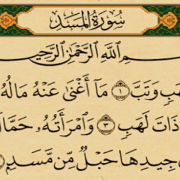 سُورَةُ الْمَسَدِ
بِسْمِ اللَّهِ الرَّحْمَٰنِ الرَّحِيمِ
وَتَبَّ ١ مَا أَغْنَىٰ عَنْهُ مَالُهُ
ذَاتَ لَهَبٍ ٣ وَامْرَأَتُهُ
جِيدِهَا حَبْلٌ مِّن مَّسَدٍ